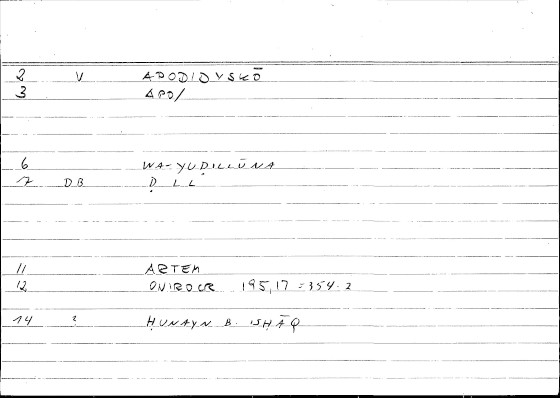 2 V APODIDYSKŌ
3 APO/
6 WA-YUḌILLŪNA
7 DB Ḍ L L
11 ARTEM
12 ONIROCR 195,17 = 354.2
14 ? ḤUNAYN B. ISḤĀQ